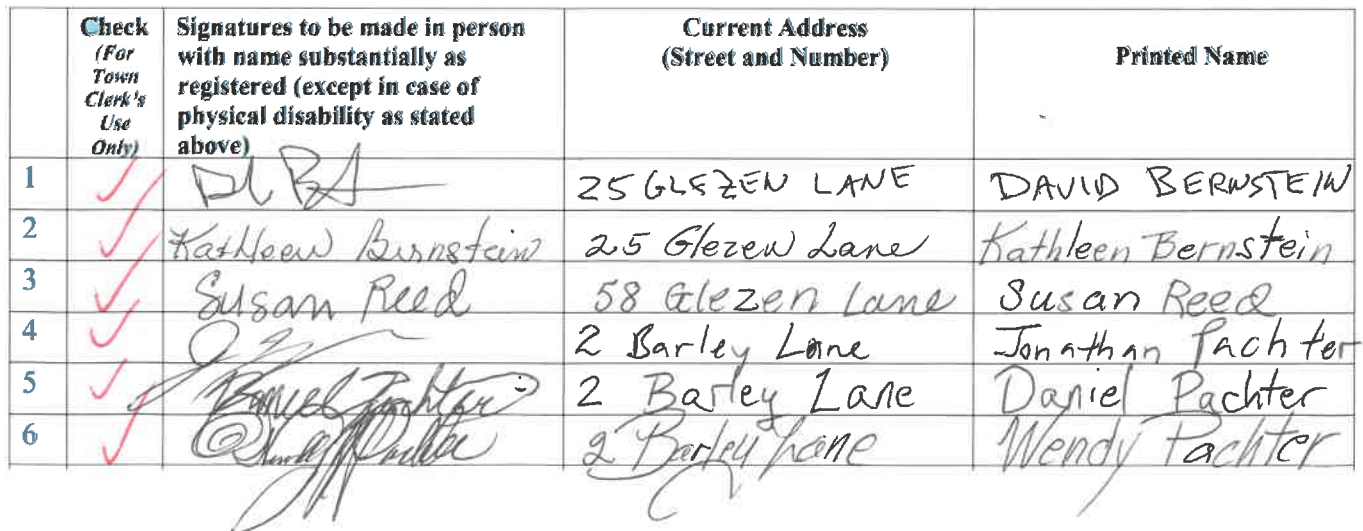 Check (For Town Clerk's Use Only)
Signatures to be made in person with name substantially as registered (except in case of physical disability as stated above)
Current Address (Street and Number)
Printed Name
1 25 GLEZEN LANE DAVID BERNSTEIN
2 Kathleen Bernstein 25 Glezen Lane Kathleen Bernstein
3 Susan Reed 58 Glezen Lane Susan Reed
4 2 Barley Lane Jonathan Pachter
5 Daniel Pachter 2 Barley Lane Daniel Pachter
6 2 Barley Lane Wendy Pachter